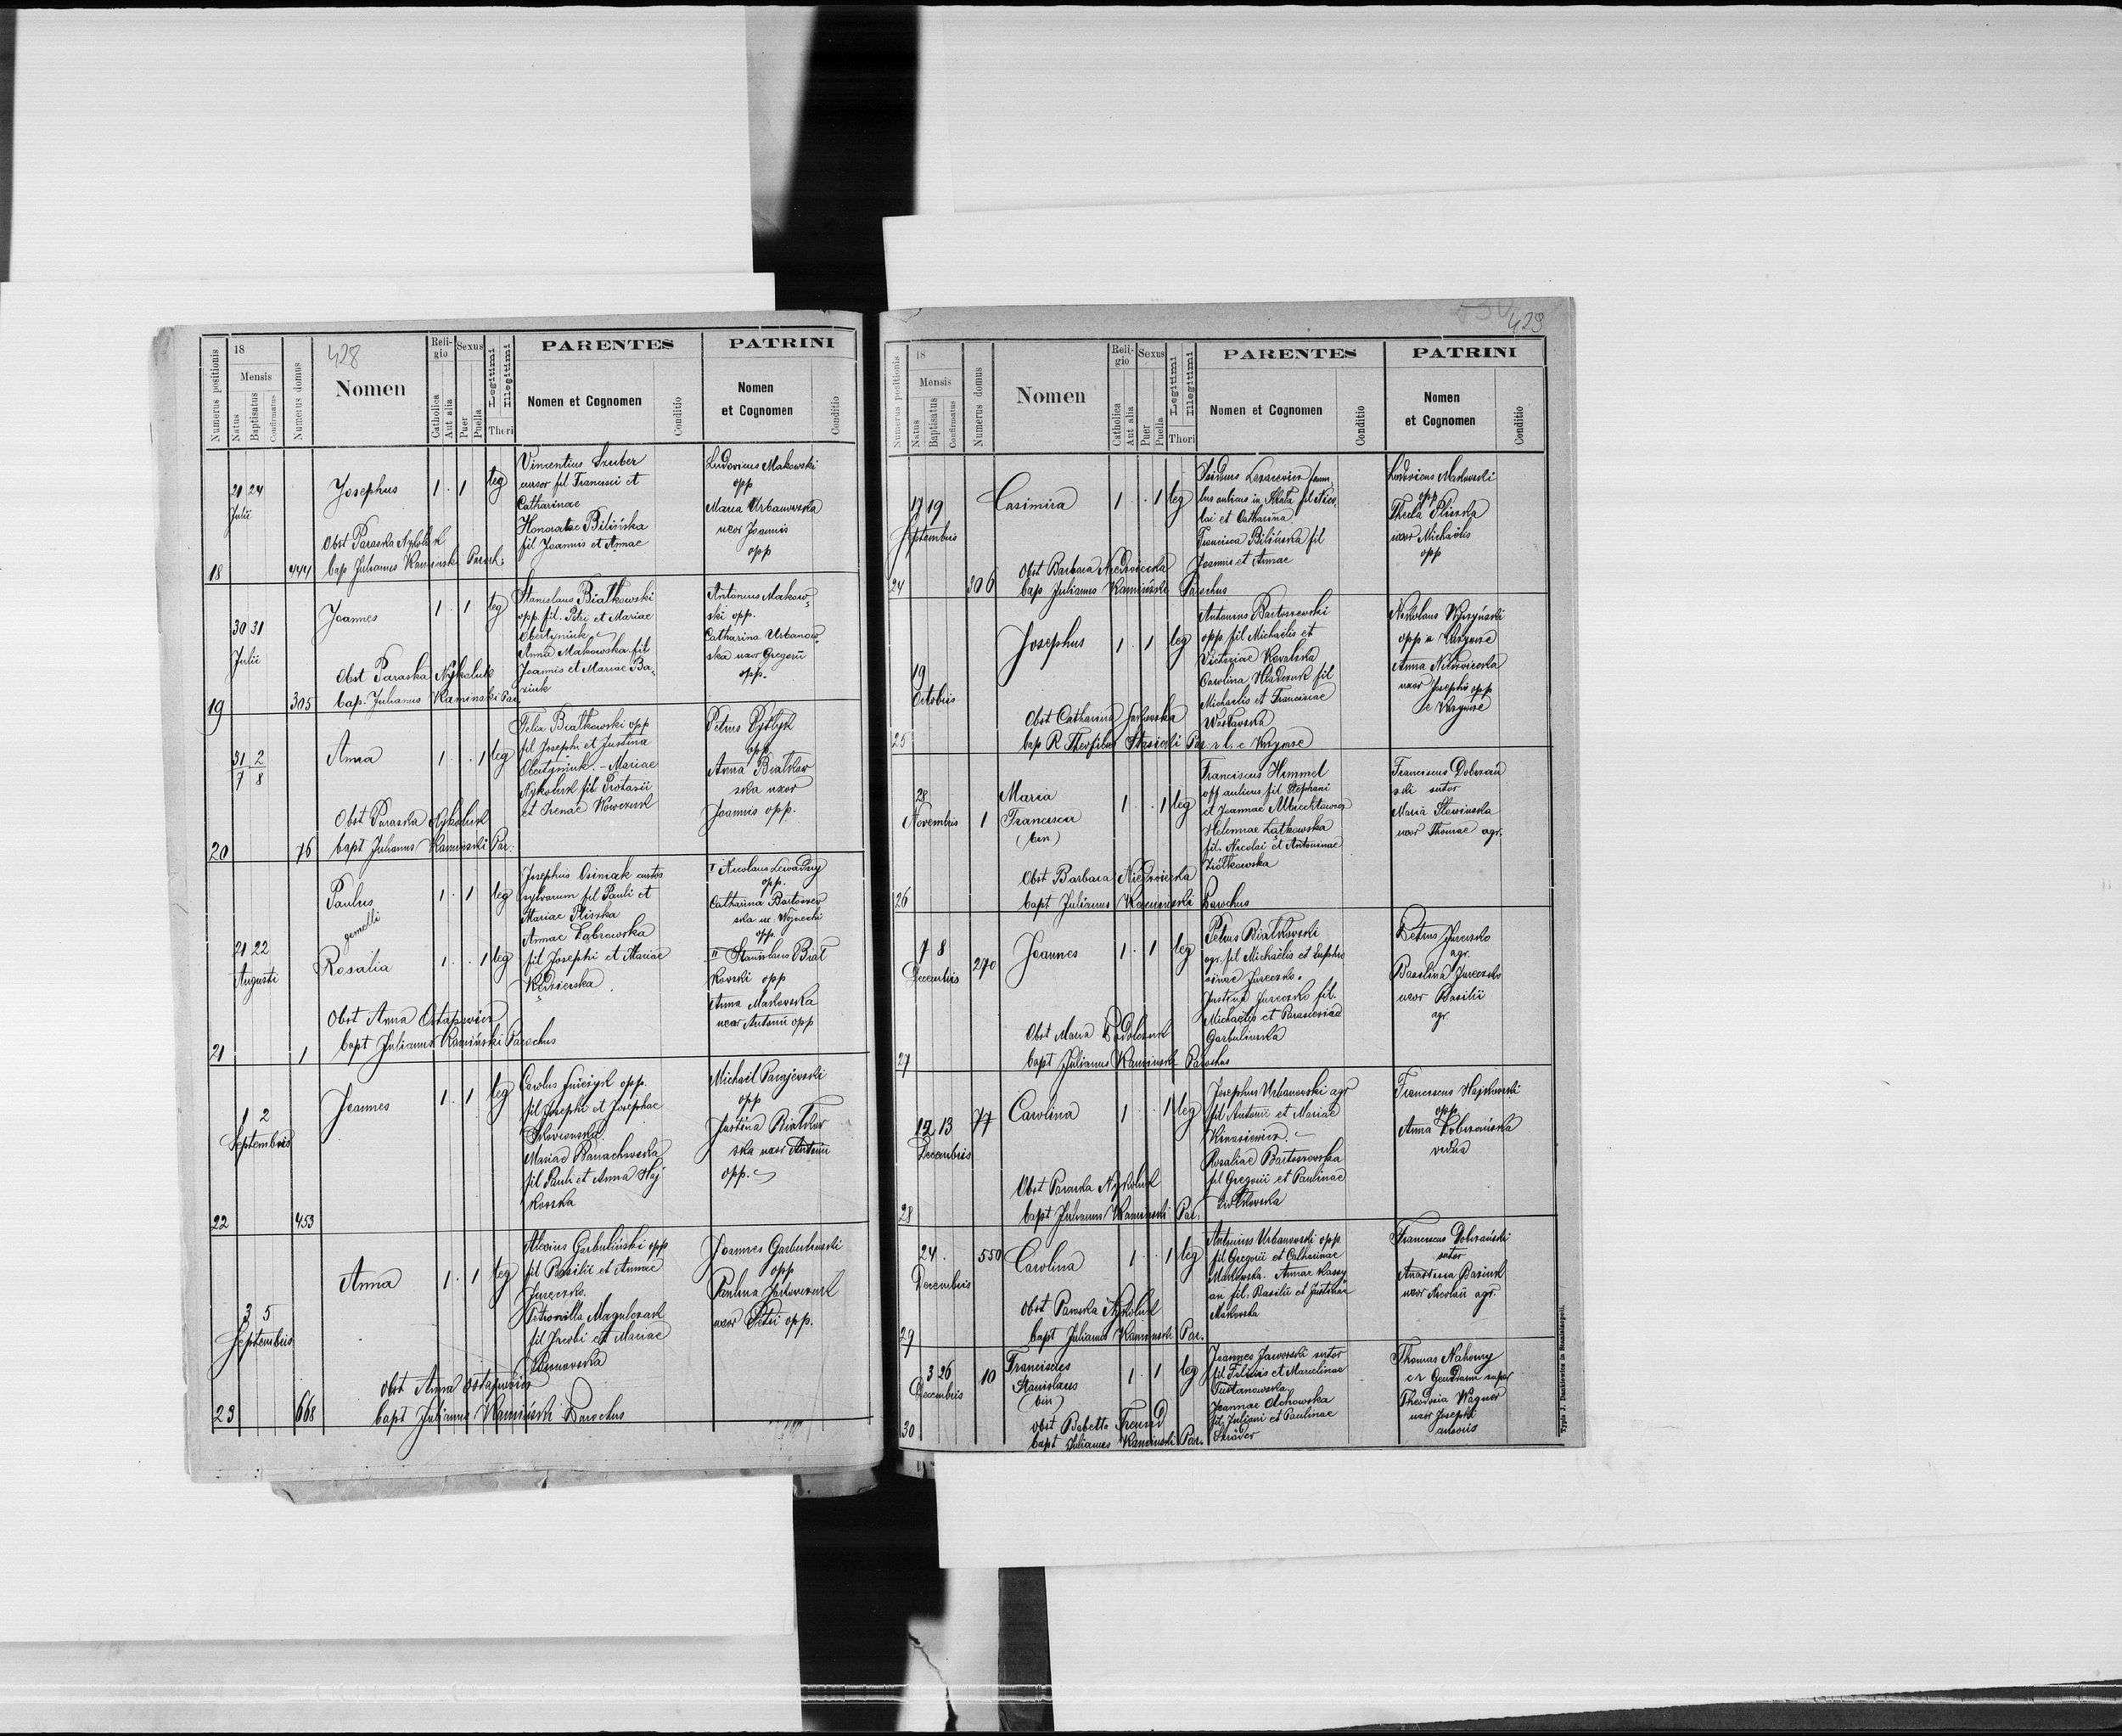 428
Numerus positionis
18
Mensis
Natus
Baptisatus
Confirmatus
Numerus domus
Nomen
Religio
Catholica
Aut alia
Sexus
Puer
Puella
Legitimi
Illegitimi
Thori
PARENTES
Nomen et Cognomen
Conditio
PATRINI
Nomen
et Cognomen
Conditio
18
21 24
Julii
444
Josephus
1 . 1
leg
Obst Paraska Nykoluk
bap Julianus Kaminski Paroch.
Vincentius Szuber
cursor fil Francisci et
Catharinae
Honoratae Bilińska
fil Joannis et Annae
Ludovicus Makowski
opp
Maria Urbanowska
uxor Joannis
opp
19
30 31
Julii
305
Joannes
1 . 1
leg
Obst Paraska Nykoluk
bap. Julianus Kaminski Par.
Stanislaus Białkowski
opp. fil. Petri et Mariae
Obertyniuk
Anna Makowska fil
Joannis et Mariae Ba,
ziuk
Antonius Makow,
ski opp.
Catharina Urbanow,
ska uxor Gregorii
opp.
20
31 2
7 8
76
Anna
1 . . 1
leg
Obst Paraska Nykoluk
bapt Julianus Kaminski Par.
Felix Białkowski opp
fil Josephi et Justina
Obertyniuk. - Mariae
Nykoluk fil Protasii
et Irenae Wowczuk
Petrus
opp
Anna Białkow
ska uxor
Joannis opp.
21
21 22
Augusti
1
Paulus
gemelli
1 . 1
leg
Rosalia
1 . . 1
leg
Obst Anna Ostapowicz
bapt Julianus Kamiński Parochus
Josephus Osimak custos
sylvarum fil Pauli et
Mariae Pliszka
Annae Dąbrowska
fil Josephi et Mariae
Kędzierska
I Nicolaus
opp.
Catharina Bartoszew
ska ux. Wojciechi
opp.
II Stanislaus Biał
kowski opp
Anna Makowska
uxor Antonii opp
22
1 2
Septembris
453
Joannes
1 . 1
leg
Carolus opp.
fil Josephi et Josephae
Mariae Banachowska
fil Pauli et Anna Haj
kowska
Michail
opp
Justina Białkow
ska uxor Antonii
opp.
23
3 5
Septembris
668
Anna
1 . 1
leg
obst Anna Ostapowicz
bapt Julianus Kamiński Parochus
Aloisius Garbuliński opp
fil Basilii et Annae
Jureczko.
Petronilla Magulczak
fil Jacobi et Mariae
Joannes Garbulinski
opp
Paulina
uxor Petri opp.
429
Numerus positionis
18
Mensis
Natus
Baptisatus
Confirmatus
Numerus domus
Nomen
Religio
Catholica
Aut alia
Sexus
Puer
Puella
Legitimi
Illegitimi
Thori
PARENTES
Nomen et Cognomen
Conditio
PATRINI
Nomen
et Cognomen
Conditio
24
17 19
Septembris
306
Casimira
1 . . 1
leg
Obst Barbara Niedzwiecka
bap Julianus Kamiński Parochus
Isidorus famu,
lus aulicus in fil Nico,
lai et Catharina.
Francisca Bilińska fil
Joannis et Annae
Ludovicus Makowski
opp
Thecla Pliszka
uxor Michaelis
opp
25
19
Octobris
Josephus
1 . 1
leg
Obst Catharina
bap R Theofilus Par. r. l. e
Antonius Bartoszewski
opp. fil Michaelis et
Victoriae Kowalska
Carolina fil
Michaelis et Franciscae
Nikolaus
opp e
Anna Niedzwiecka
uxor Josephi opp
e
26
28
Novembris
1
Maria
Francisca
(bin)
1 . . 1
leg
Obst Barbara Niedzwiecka
bapt Julianus Kaminski Parochus
Franciscus Himmel
off aulicus fil Stephani
et Joannae
Helennae Łątkowska
fil. Nicolai et Antoninae
Ziółkowska
Franciscus Dobrzań
ski sutor
Maria
uxor Thomae agr.
27
7 8
Decembris
270
Joannes
1 . 1
leg
Obst Maria
bapt Julianus Kaminski Parochus
Petrus Białkowski
agr. fil Michaelis et Euphro
sinae Jureczko.
Justina Jureczko fil.
Michaelis et
Garbulinska
Petrus Jureczko
agr.
Basilina Jureczko
uxor Basilii
agr.
28
12 13
Decembris
77
Carolina
1 . . 1
leg
Obst Paraska Nykoluk
bapt Julianus Kaminski Par.
Josephus Urbanowski agr
fil Antonii et Mariae
Rosaliae Bartoszowska
fil Gregorii et Paulinae
Ziółkowska
Franciscus Hajkowski
opp.
Anna Dobrzańska
vidua
29
24.
Decembris
550
Carolina
1 . . 1
leg
obst Paraska Nykoluk
bapt Julianus Kaminski Par.
Antonius Urbanowski opp.
fil Gregorii et Catharinae
Makowska. Annae Kassy
an fil. Basilii et Justinae
Makowska
Franciscus Dobrzański
sutor
Anastasia Basiuk
uxor Nicolaii agr.
30
3 26
Decembris
10
Franciscus
Stanislaus
(bin)
1 . 1
leg
obst Babetta
bapt Julianus Kaminski Par.
Joannes Jaworski sutor
fil Felicis et Marcelinae
Tustanowska
Joannae Olchowska
fil. Juliani et Paulinae
Schröder
Thomas Nahorny
Theodosia Wagner
uxor Josephi
Typis J. Dankiewicz in Stanislaopoli.